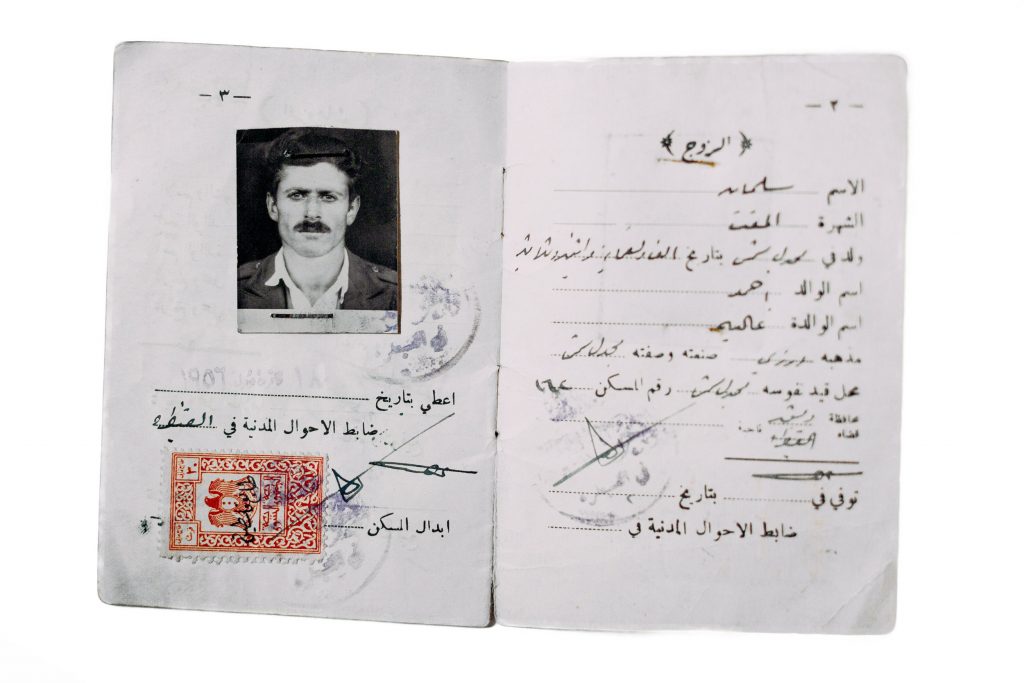 — ٢ —
﴿ الزوج ﴾
الاسم سلمان
الشهرة المقت
ولد في مجدل شمس بتاريخ الف وتسعماية واثنين وثلاثين
اسم الوالد احمد
اسم الوالدة
مذهبه درزي صنعته وصفته مجدل شمس
محل قيد نفوسه مجدل شمس رقم المسكن
محافظة دمشق
قضاء القنيطرة ناحية
توفي في بتاريخ
ضابط الاحوال المدنية في
— ٣ —
اعطي بتاريخ
ضابط الاحوال المدنية في القنيطرة
ابدال المسكن